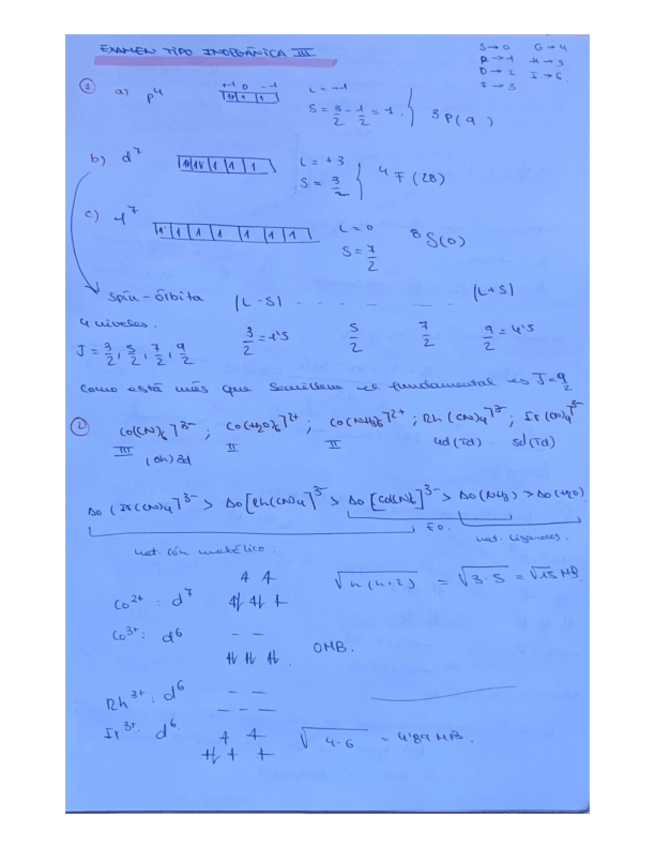 EXAMEN TIPO INORGÁNICA III
S→0 G→4
P→1 H→5
D→2 I→6
F→3
① a) p⁴ +1 0 -1 L = +1
S = 3/2 - 1/2 = 1. ³P(9)
b) d⁷ L = +3
S = 3/2 ⁴F (28)
c) f⁷ L = 0
S = 7/2 ⁸S(0)
Spin-órbita |L-S| |L+S|
4 niveles.
J = 3/2, 5/2, 7/2, 9/2 3/2 = 1'5 5/2 7/2 9/2 = 4'5
como está más que semilleno el fundamental es J=9/2
② Co(CN)₆]³⁻ ; Co(H₂O)₆]²⁺ ; Co(NH₃)₆]²⁺ ; Rh(CN)₄]³⁻ ; Ir(CN)₄]³⁻
III II II 4d(Td) 5d(Td)
(Oh)3d
Δo (Ir(CN)₄]³⁻ > Δo[Rh(CN)₄]³⁻ > Δo[Co(CN)₆]³⁻ > Δo(NH₃) > Δo(H₂O)
E.O.
nat. ión metálico. nat. ligandos.
Co²⁺ : d⁷ √n(n+2) = √3·5 = √15 MB
Co³⁺ : d⁶ 0MB.
Rh³⁺ : d⁶
Ir³⁺ : d⁶ √4·6 = 4'89 MB.